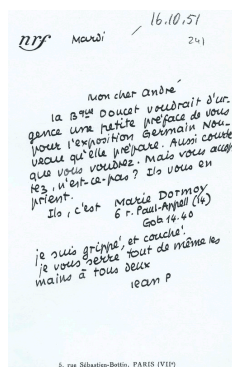 16.10.51
nrf Mardi / 241
Mon cher André
la Bque Doucet voudrait d'ur-
gence une petite préface de vous
pour l'exposition Germain Nou-
veau qu'elle prépare. Aussi courte
que vous voudrez. Mais vous accep
tez, n'est-ce-pas ? Ils vous en
prient.
Ils, c'est Marie Dormoy
6 r. Paul-Appell (14)
Gob 14.40
je suis grippé, et couché.
je vous serre tout de même les
mains à tous deux
Jean P
5, rue Sébastien-Bottin, PARIS (VIIe)